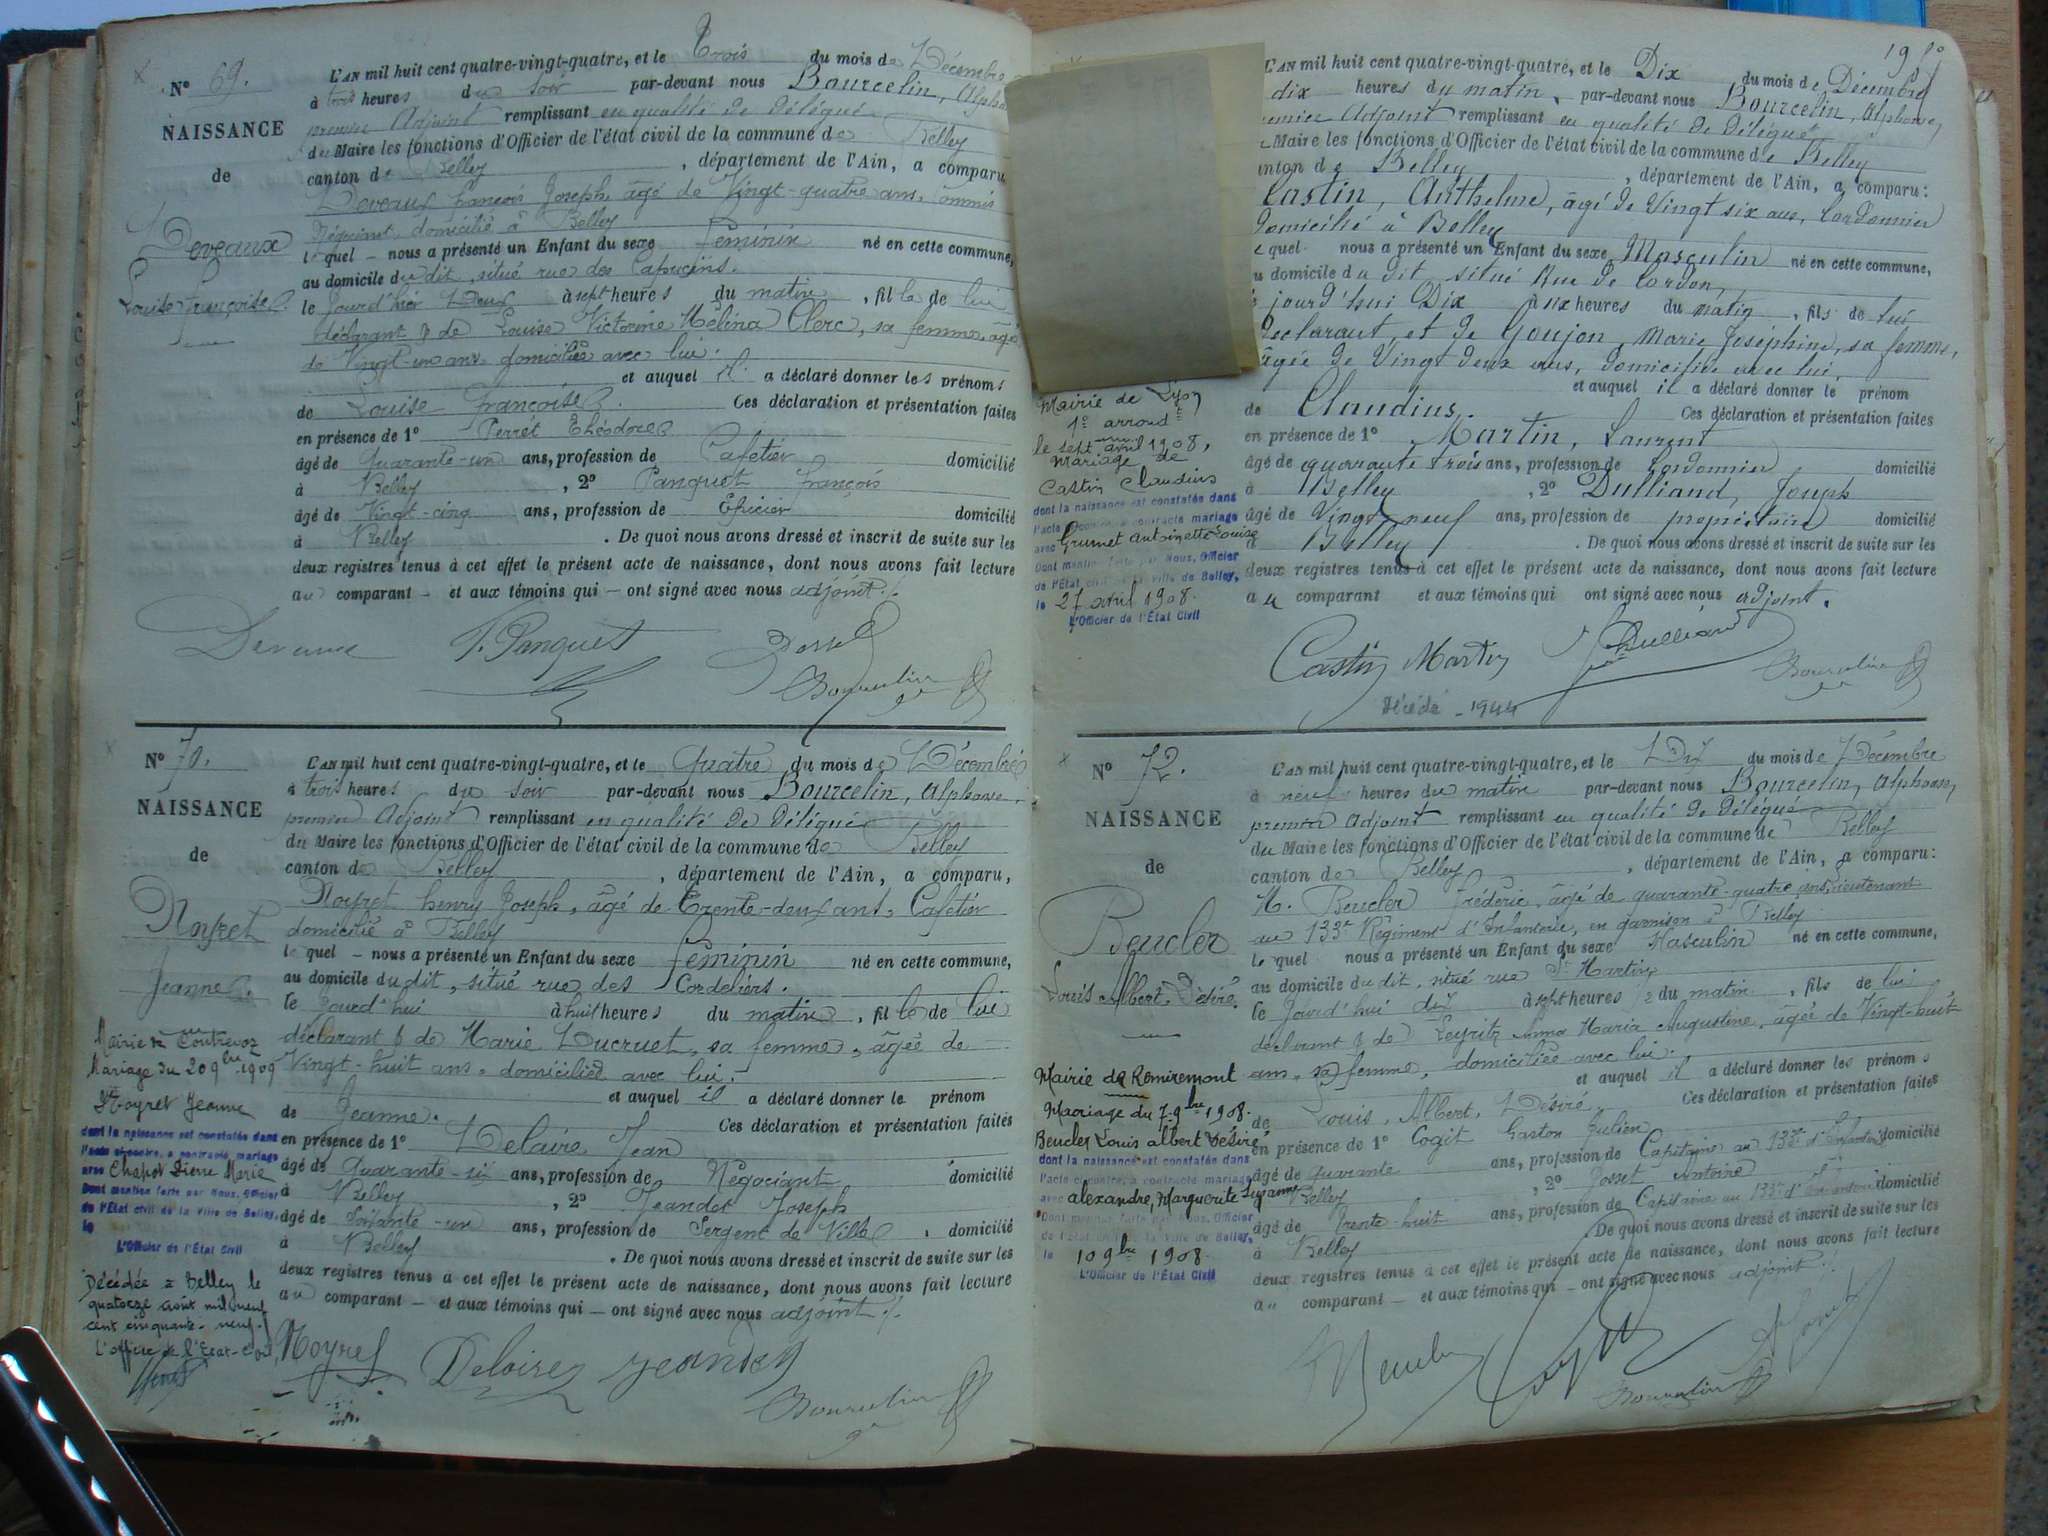 N° 69.
NAISSANCE
de
Deveaux
Louise Françoise.
L'AN mil huit cent quatre-vingt-quatre, et le Trois du mois de Décembre
à trois heures du soir par-devant nous Bourcelin, Alphonse
premier Adjoint remplissant en qualité de Délégué
du Maire les fonctions d'Officier de l'état civil de la commune de Belley
canton de Belley, département de l'Ain, a comparu
Deveaux françois Joseph, âgé de Vingt-quatre ans, Commis
Négociant domicilié à Belley
le quel – nous a présenté un Enfant du sexe féminin né en cette commune,
au domicile du dit, situé rue des Capucins.
le jourd'hier Deux à sept heures du matin, fille de lui
déclarant & de Louise Victorine Mélina Clerc, sa femme, âgée
de Vingt-un ans domiciliée avec lui.
et auquel il a déclaré donner les prénoms
de Louise Françoise. Ces déclaration et présentation faites
en présence de 1° Perret Théodore
âgé de Quarante-un ans, profession de Cafetier domicilié
à Belley, 2° Panquet François
âgé de Vingt-cinq ans, profession de Epicier domicilié
à Belley. De quoi nous avons dressé et inscrit de suite sur les
deux registres tenus à cet effet le présent acte de naissance, dont nous avons fait lecture
au comparant – et aux témoins qui – ont signé avec nous adjoint.
Deveaux F. Panquet Perret
Bourcelin
N° 70.
NAISSANCE
de
Noyret
Jeanne.
L'AN mil huit cent quatre-vingt-quatre, et le Quatre du mois de Décembre
à trois heures du soir par-devant nous Bourcelin, Alphonse,
premier Adjoint remplissant en qualité de Délégué
du Maire les fonctions d'Officier de l'état civil de la commune de Belley
canton de Belley, département de l'Ain, a comparu,
Noyret henry Joseph, âgé de Trente-deux ans, Cafetier
domicilié à Belley
le quel – nous a présenté un Enfant du sexe féminin né en cette commune,
au domicile du dit, situé rue des Cordeliers.
le jourd'hui à huit heures du matin, fille de lui
déclarant & de Marie Ducruet, sa femme, âgée de
Vingt-huit ans, domiciliée avec lui.
et auquel il a déclaré donner le prénom
de Jeanne. Ces déclaration et présentation faites
en présence de 1° Delaire Jean
âgé de Quarante-six ans, profession de Négociant domicilié
à Belley, 2° Jeandet Joseph
âgé de Soixante-un ans, profession de Sergent de Ville, domicilié
à Belley. De quoi nous avons dressé et inscrit de suite sur les
deux registres tenus à cet effet le présent acte de naissance, dont nous avons fait lecture
au comparant – et aux témoins qui – ont signé avec nous adjoint.
Mairie de Contrevoz
Mariage du 20 9bre 1909
Noyret Jeanne
dont la naissance est constatée dans
l'acte ci-contre, a contracté mariage
avec Chapot Pierre Marie
Dont mention faite par Nous, Officier
de l'État civil de la Ville de Belley,
le
L'Officier de l'État Civil
Décédée à Belley le
quatorze août mil neuf
cent cinquante-neuf
L'officier de l'Etat-Civil,
Noyret Delaire Jeandet
Bourcelin
L'AN mil huit cent quatre-vingt-quatre, et le Dix du mois de Décembre
dix heures du matin, par-devant nous Bourcelin, Alphonse,
Adjoint remplissant en qualité de Délégué
Maire les fonctions d'Officier de l'état civil de la commune de Belley
de Belley, département de l'Ain, a comparu:
Castin, Anthelme, âgé de Vingt six ans, Cordonnier
domicilié à Belley
quel nous a présenté un Enfant du sexe Masculin né en cette commune,
domicile du dit situé Rue de Cordon,
jourd'hui Dix à six heures du matin, fils de lui
déclarant et de Goujon, Marie Joséphine, sa femme,
âgée de Vingt deux ans, domiciliée avec lui.
et auquel il a déclaré donner le prénom
de Claudius. Ces déclaration et présentation faites
en présence de 1° Martin, Laurent
âgé de quarante trois ans, profession de Cordonnier domicilié
à Belley, 2° Dulliand, Joseph
âgé de Vingt neuf ans, profession de propriétaire domicilié
à Belley. De quoi nous avons dressé et inscrit de suite sur les
deux registres tenus à cet effet le présent acte de naissance, dont nous avons fait lecture
au comparant et aux témoins qui ont signé avec nous adjoint.
Mairie de Lyon
1er arrond
le sept avril 1908,
Mariage de
Castin Claudius
dont la naissance est constatée dans
l'acte ci-contre, a contracté mariage
avec Grumet Antoinette Louise
Dont mention faite par Nous, Officier
de l'État civil de la Ville de Belley,
le 27 avril 1908.
L'Officier de l'État Civil
Castin Martin J. Dulliand
Bourcelin
Décédé - 1944
N° 72.
NAISSANCE
de
Beucler
Louis Albert Désiré.
L'AN mil huit cent quatre-vingt-quatre, et le Dix du mois de Décembre
à neuf heures du matin par-devant nous Bourcelin, Alphonse,
premier Adjoint remplissant en qualité de Délégué
du Maire les fonctions d'Officier de l'état civil de la commune de Belley
canton de Belley, département de l'Ain, a comparu:
M. Beucler Frédéric, âgé de quarante-quatre ans, lieutenant
au 133e Régiment d'Infanterie, en garnison à Belley
le quel nous a présenté un Enfant du sexe Masculin né en cette commune,
au domicile du dit, situé rue St Martin
le jourd'hui dix à sept heures ½ du matin, fils de lui
déclarant & de Leyritz Anna Maria Augustine, âgée de Vingt-huit
ans, sa femme, domiciliée avec lui.
et auquel il a déclaré donner les prénoms
de Louis, Albert, Désiré. Ces déclaration et présentation faites
en présence de 1° Cogit Gaston Julien
âgé de quarante ans, profession de Capitaine au 133e d'Infanterie domicilié
Belley, 2° Josset Antoine
âgé de Trente-huit ans, profession de Capitaine au 133e d'Infanterie domicilié
à Belley. De quoi nous avons dressé et inscrit de suite sur les
deux registres tenus à cet effet le présent acte de naissance, dont nous avons fait lecture
au comparant – et aux témoins qui – ont signé avec nous adjoint.
Mairie de Remiremont
Mariage du 7. 9bre 1908.
Beucler Louis albert Désiré
dont la naissance est constatée dans
l'acte ci-contre, a contracté mariage
avec alexandre, Marguerite Suzanne
Dont mention faite par Nous, Officier
de l'État civil de la Ville de Belley,
le 10 9bre 1908.
L'Officier de l'État Civil
Beucler
Bourcelin